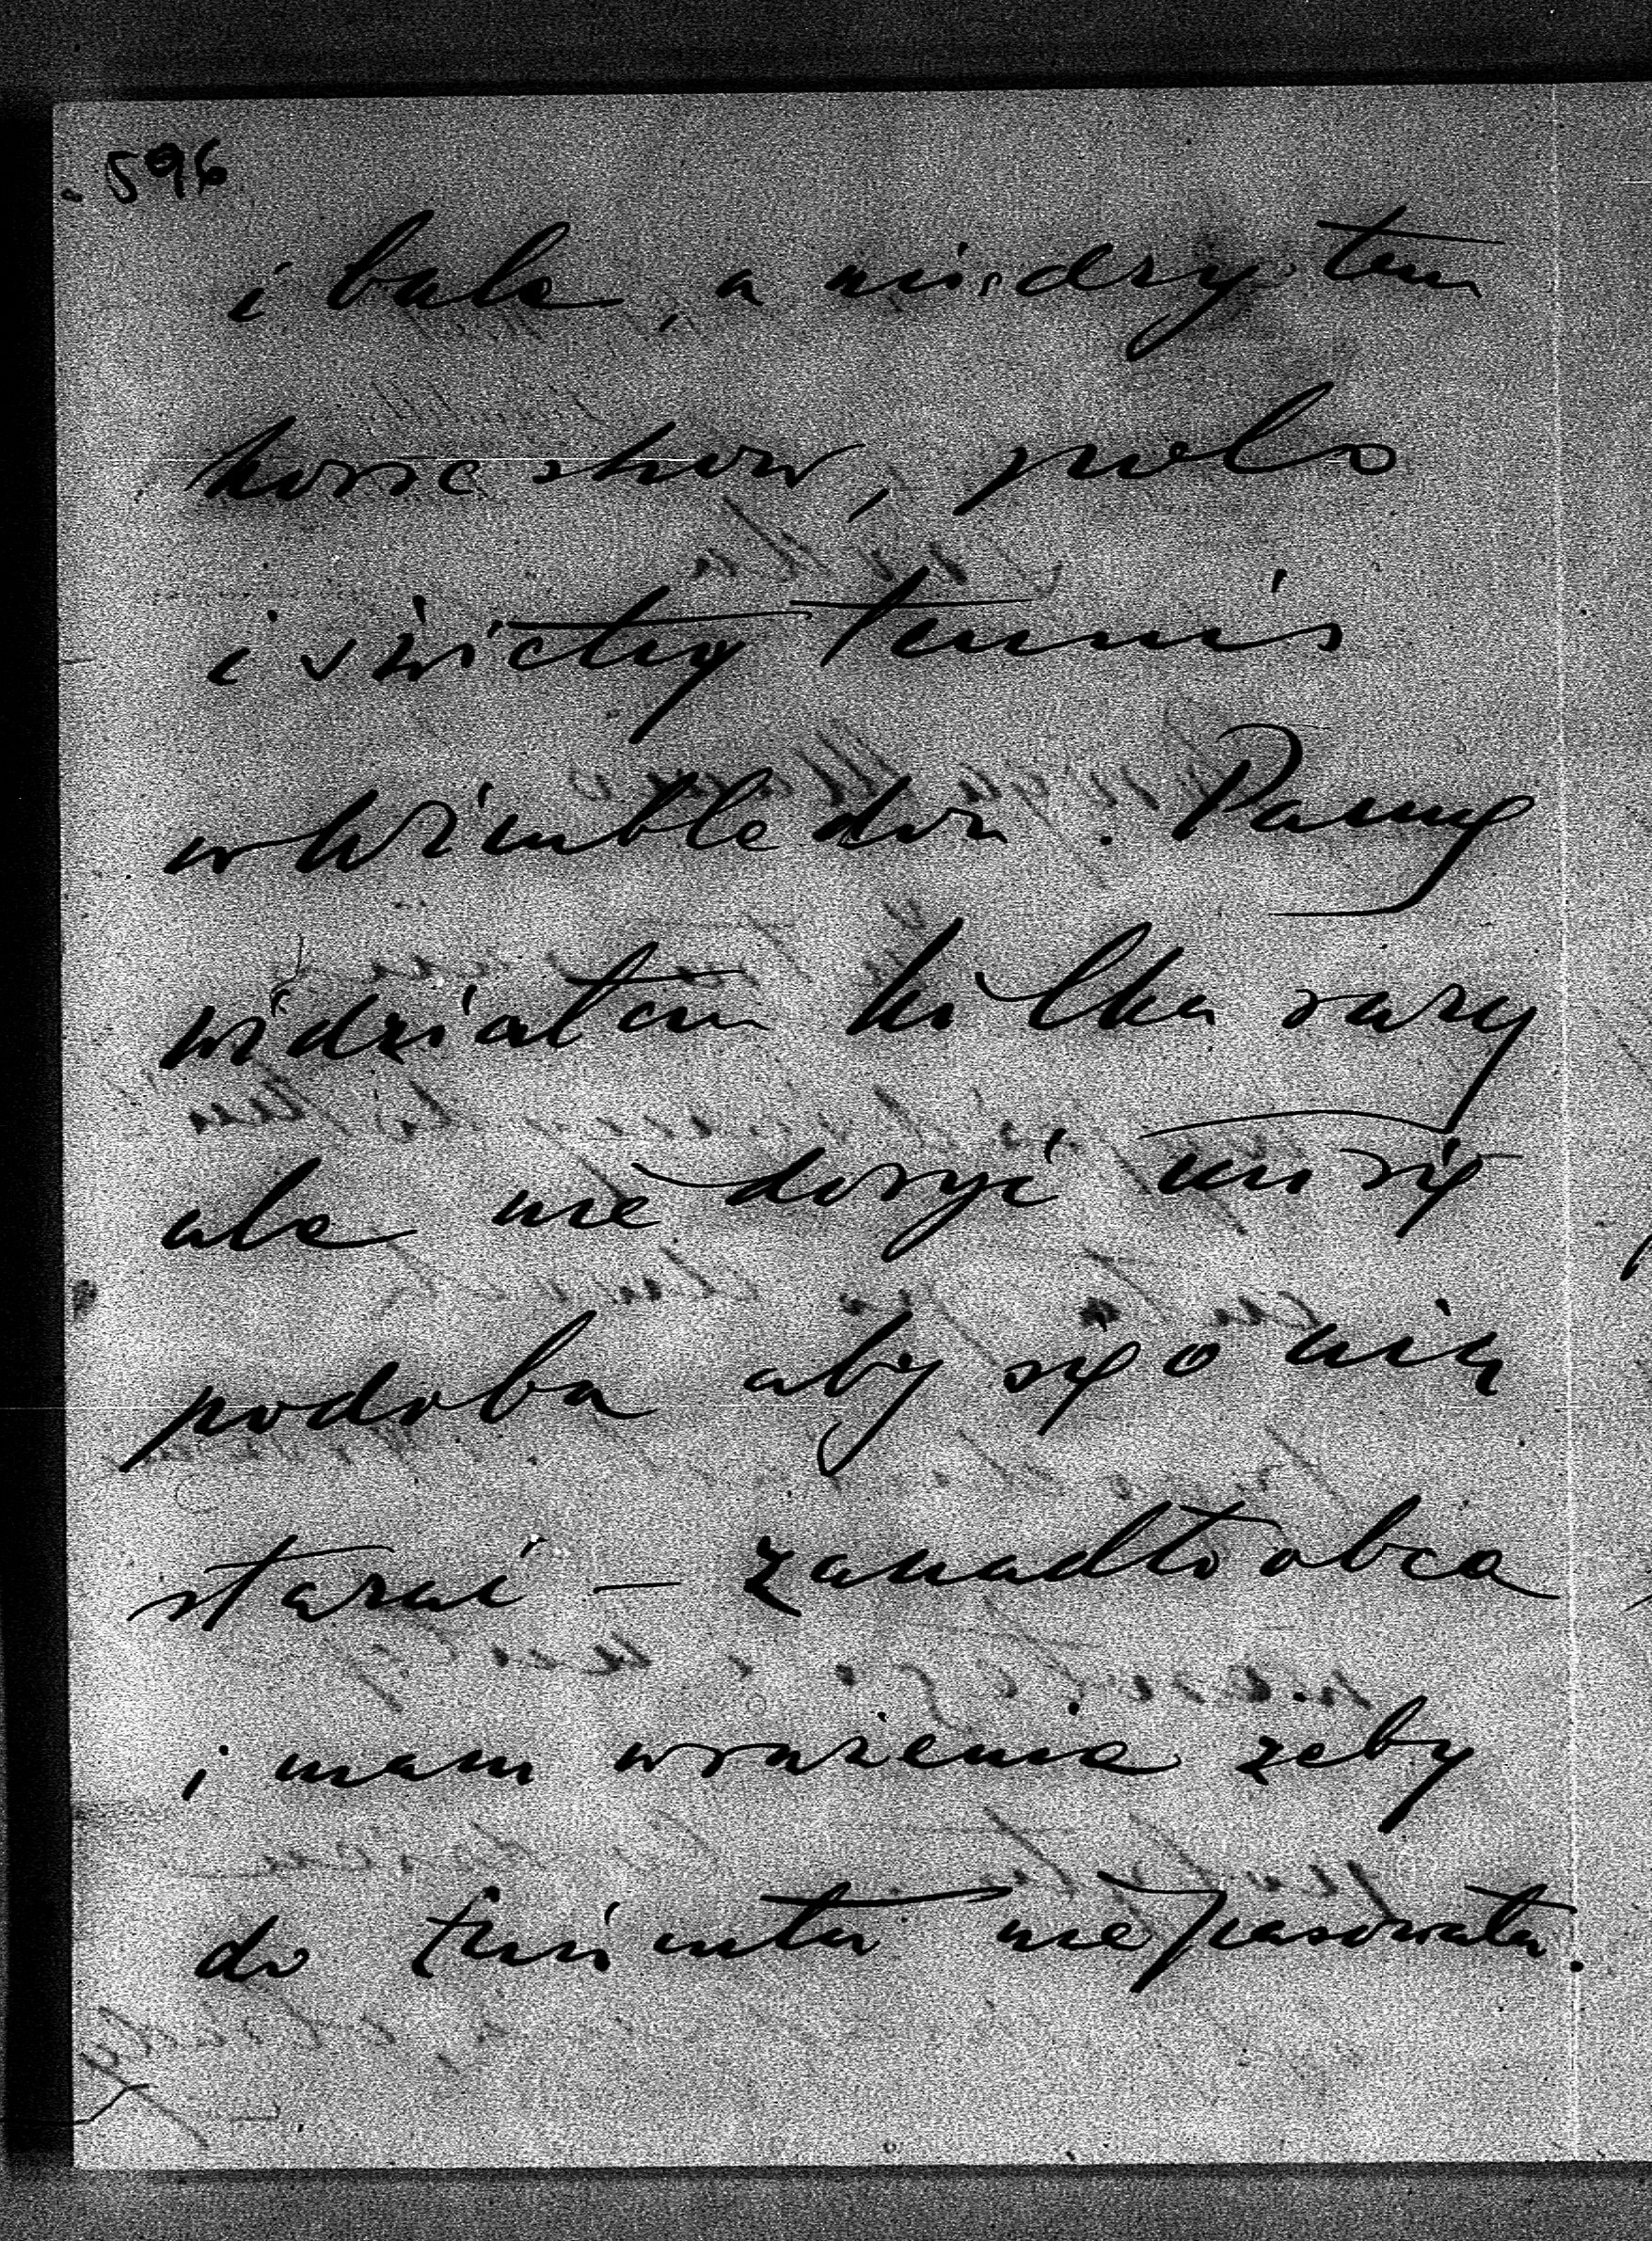 596
i bale, a między tem
horse show, polo
i świetny tennis
w Wimbledon. Pannę
widziałem kilka razy
ale nie dosyć mi się
podoba aby się o nią
starać – zanadto obca
i mam wrażenie żeby
do nie pasowała.